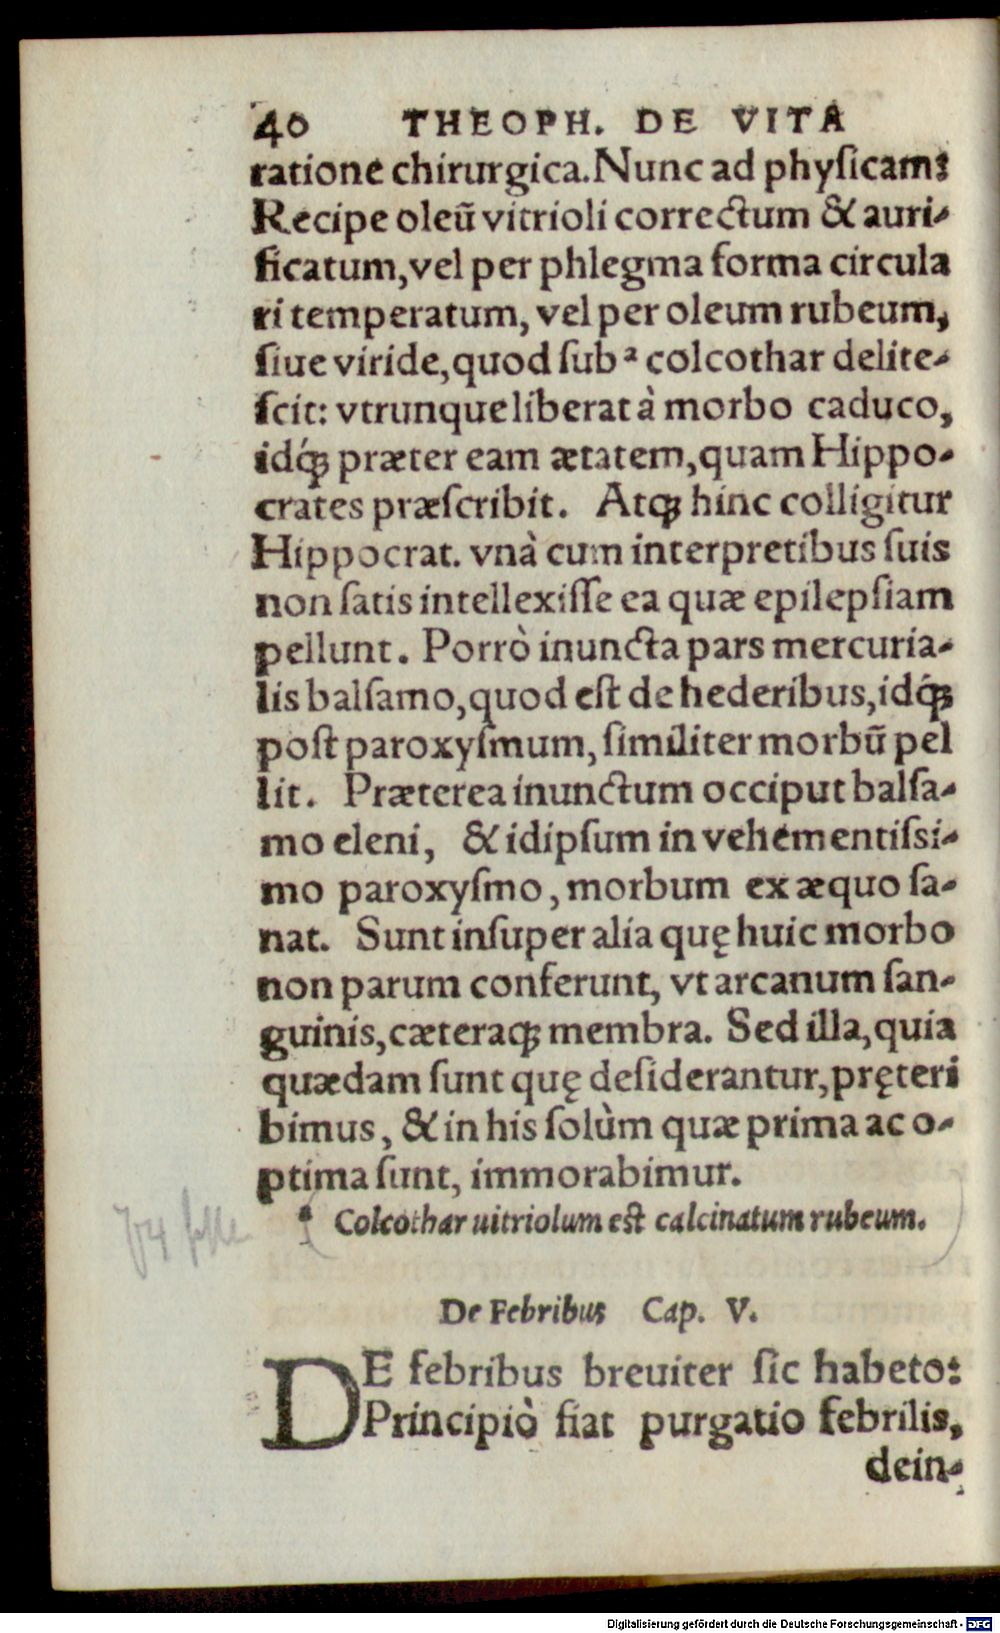 40 THEOPH. DE VITA
ratione chirurgica. Nunc ad phyſicam:
Recipe oleũ vitrioli correctum & auri-
ficatum, vel per phlegma forma circula
ri temperatum, vel per oleum rubeum,
ſiue viride, quod ſub ª colcothar delite-
ſcit: vtrunque liberat à morbo caduco,
idq́ꝫ præter eam ætatem, quam Hippo-
crates præſcribit. Atqꝫ hinc colligitur
Hippocrat. vnà cum interpretibus ſuis
non ſatis intellexiſſe ea quæ epilepſiam
pellunt. Porrò inuncta pars mercuria-
lis balſamo, quod eſt de hederibus, idq́ꝫ
poſt paroxyſmum, ſimiliter morbũ pel
lit. Præterea inunctum occiput balſa-
mo eleni, & idipſum in vehementiſsi-
mo paroxyſmo, morbum ex æquo ſa-
nat. Sunt inſuper alia quę huic morbo
non parum conferunt, vt arcanum ſan-
guinis, cæteraqꝫ membra. Sed illa, quia
quædam ſunt quę deſiderantur, pręteri
bimus, & in his ſolùm quæ prima ac o-
ptima ſunt, immorabimur.
ª Colcothar uitriolum eſt calcinatum rubeum.
De Febribus Cap. V.
DE febribus breuiter ſic habeto:
Principiò fiat purgatio febrilis,
dein-
Digitalisierung gefördert durch die Deutsche Forschungsgemeinschaft - DFG